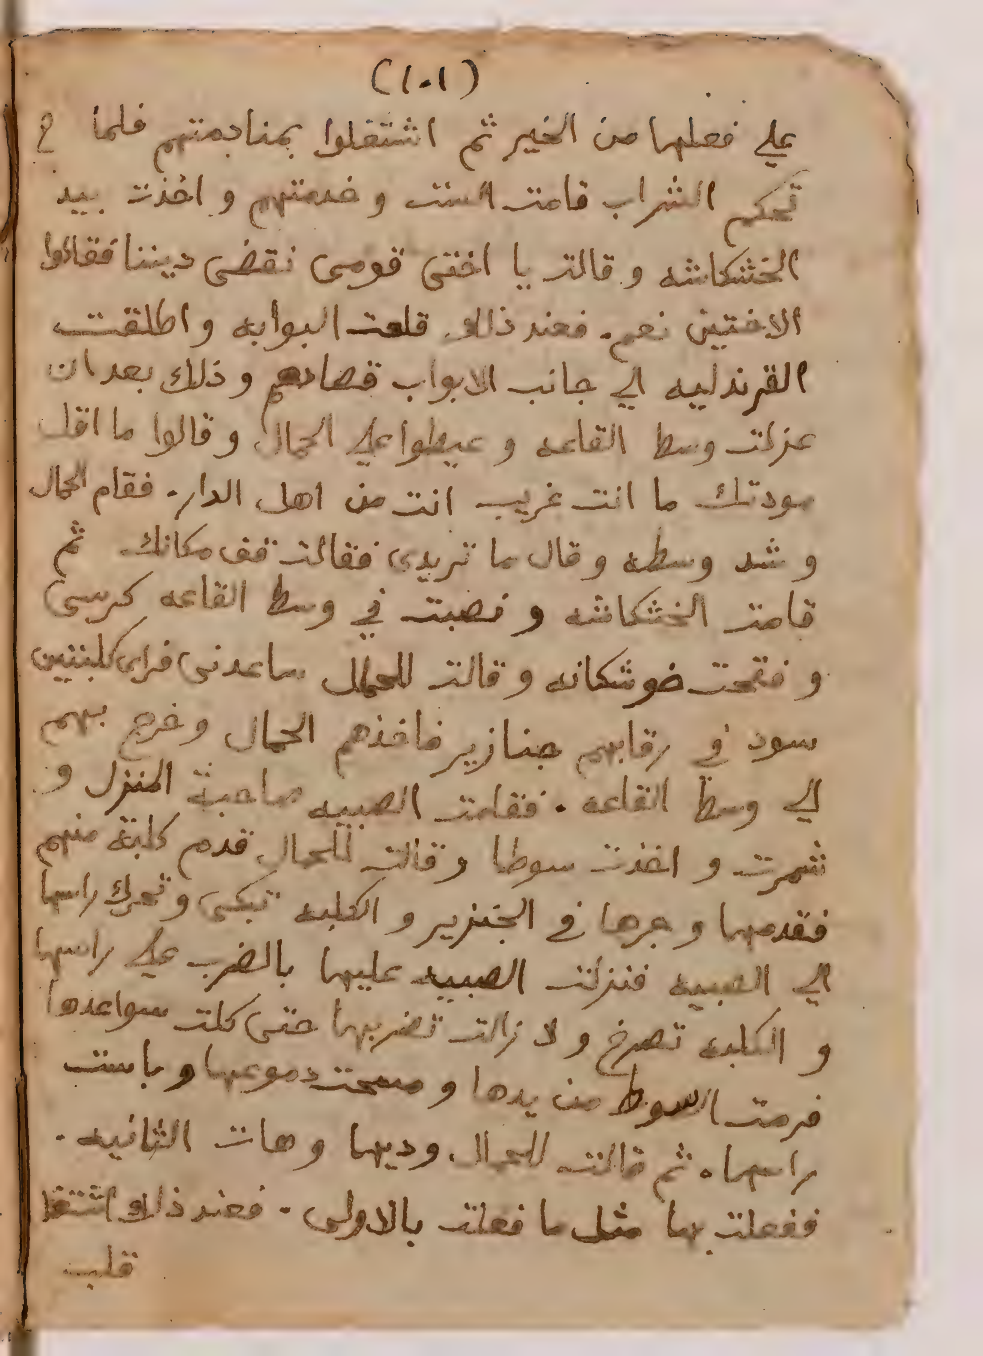 (١٠١)
علي فعلها من الخير ثم اشتغلوا بمنادمتهم فلما
تحكم الشراب قامت الست و خدمتهم و اخذت بيد
الخشكاشه و قالت يا اختي قومى نقضى ديننا فقالوا
الاختين نعم. فعند ذلك قلعت البوابه و اطلقت
القرندليه الي جانب الابواب قصادهم و ذلك بعد ان
عزلت وسط القاعه و عيطوا علي الحمال و قالوا ما اقل
مودتك ما انت غريب انت من اهل الدار. فقام الحمال
و شد وسطه و قال ما تريدى فقالت قف مكانك ثم
قامت الخشكاشه و نصبت في وسط القاعه كرسى
و فتحت خوشكانه و قالت للحمال ساعدنى فراى كلبتين
سود في رقابهم جنازير فاخذهم الحمال و خرج بهم
الي وسط القاعه. فقامت الصبيه صاحبة المنزل و
شمرت و اخذت سوطا و قالت للحمال قدم كلبة منهم
فقدمها و جرها في الجنزير و الكلبه تبكى و تحرك راسها
الي الصبيه فنزلت الصبيه عليها بالضرب علي راسها
و الكلبه تصرخ و لا زالت تضربها حتى كلت سواعدها
فرمت السوط من يدها و مسحت دموعها و باست
راسها. ثم قالت للحمال وديها و هات الثانيه.
ففعلت بها مثل ما فعلت بالاولى. فعند ذلك اشتغل
قلب